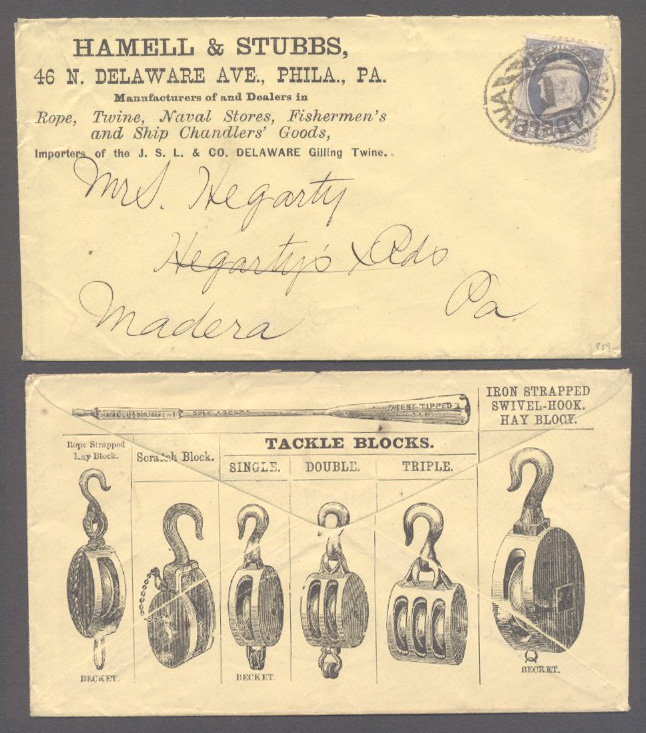 HAMELL & STUBBS,
46 N. DELAWARE AVE., PHILA., PA.
Manufacturers of and Dealers in
Rope, Twine, Naval Stores, Fishermen's
and Ship Chandlers' Goods,
Importers of the J. S. L. & CO. DELAWARE Gilling Twine.
PHILADELPHIA
Mrs. Hegarty
Hegarty's X Rds
Madera Pa
IRON STRAPPED
SWIVEL-HOOK.
HAY BLOCK.
PATENT TIPPED
SOLE AGENTS
Rope Strapped
Hay Block.
Scratch Block.
TACKLE BLOCKS.
SINGLE. DOUBLE. TRIPLE.
BECKET. BECKET. BECKET.